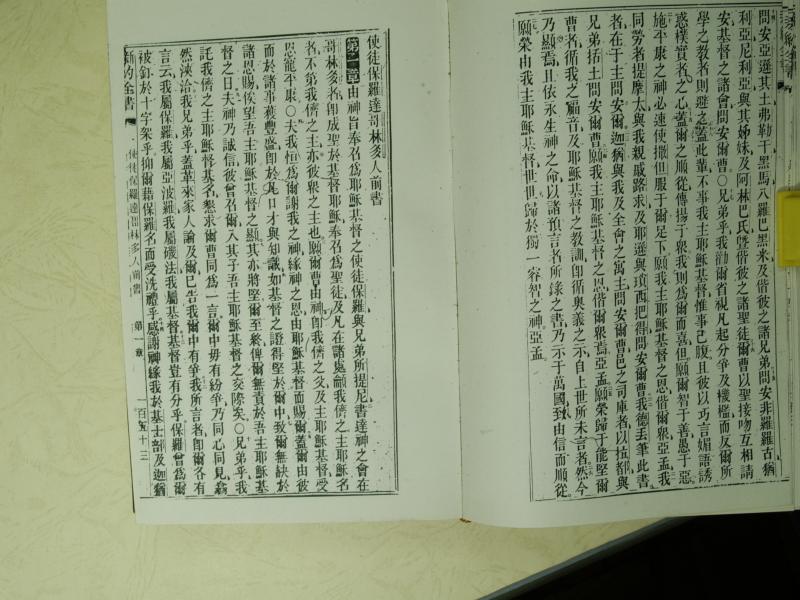 問安亞遜其土弗勒干黑馬八羅巴黑米及偕彼之諸兄弟問安非羅羅古猶
利亞尼利亞與其姊妹及阿林巴氏曁偕彼之諸聖徒爾曹以聖接吻互相請
安基督之諸會問安爾曹〇兄弟乎我勸爾省視凡起分爭及機檻而反爾所
學之教者則避之蓋此輩不事我主耶穌基督惟事己腹且彼以巧言媚語誘
惑樸實者之心蓋爾之順從傳揚于衆我則爲爾而喜但願爾智于善愚于惡
施平康之神必速使撒但服于爾足下願我主耶穌基督之恩偕爾衆亞孟我
同勞者提摩太與我親戚路求及耶遜與瑣西把得問安爾曹我德丟筆此書
者在于主問安爾曹迦猶與我及全會之寓主問安爾曹邑之司庫者以拉都與
兄弟括土問安爾曹願我主耶穌基督之恩偕爾衆焉亞孟願榮歸于能堅爾
曹者循我之福音及耶穌基督之教訓卽循奧義之示自上世所未言者然今
乃顯焉且依永生神之命以諸預言者所錄之書乃示于萬國致由信而順從
願榮由我主耶穌基督世世歸於獨一睿智之神亞孟
使徒保羅達哥林多人前書
第一章由神旨奉召爲耶穌基督之使徒保羅與兄弟所提尼書達神之會在
哥林多者卽成聖於基督耶穌奉召爲聖徒及凡在諸處籲我儕之主耶穌名
者不第我儕之主亦彼衆之主也願爾曹由神卽我儕之父及主耶穌基督受
恩寵平康〇夫我恒爲爾謝我之神緣神之恩由耶穌基督而賜爾蓋爾由彼
而於諸事獲豐盛卽於口才與知識如基督之證得堅於爾中致爾無缺於
諸恩賜俟望吾主耶穌基督之顯其亦將堅爾至終俾爾無責於吾主耶穌基
督之日夫神乃誠信彼曾召爾入其子吾主耶穌基督之交際矣〇兄弟乎我
託我儕之主耶穌基督名懇求爾曹同爲一言爾中毋有紛爭乃同心同見翕
然浹洽我兄弟乎蓋革來家人論及爾已告我爾中有爭我所言者卽爾各有
言云我屬保羅我屬亞波羅我屬磯法我屬基督基督豈有分乎保羅曾爲爾
被釘於十字架乎抑爾藉保羅名而受洗禮乎感謝神緣我於基士部及迦猶
新約全書 使徒保羅達哥林多人前書 第一章 一百五十三